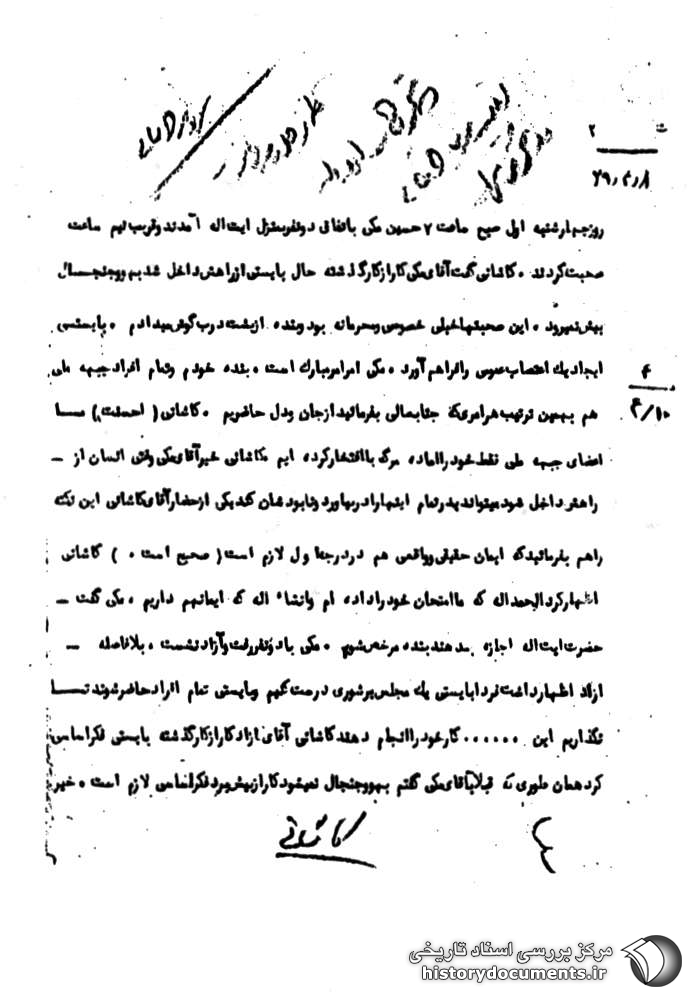 ت ۲
۲۹ر۴ر۸
روز چهارشنبه اول صبح ساعت ۷ حسین مکی باتفاق دونفر بمنزل ایت اله آمدند و قریب نیم ساعت
صحبت کردند ، کاشانی گفت آقای مکی کار از کار گذشته حال بایستی از راهش داخل شد بهووجنجال
پیش نمیرود ، این صحبتها خیلی خصوصی و محرمانه بود و بنده از پشت درب گوش میدادم ، بایستی
ایجاد یک اعتصاب عمومی را فراهم آورد ، مکی امر امر مبارک است ، بنده خودم و تمام افراد جبهه ملی
۴
۴/۱۰
هم بهمین ترتیب هر امری که جنابعالی بفرمائید از جان و دل حاضریم ، کاشانی ( احسنت ) مـا
اعضای جبهه ملی فقط خود را آماده مرگ با افتخار کرده ایم کاشانی خیر آقای مکی وقتی انسان از ـ
راهش داخل شود میتواند پدر تمام اینها را در بیاورد و نابودشان کند یکی از حضار آقای کاشانی این نکته
را هم بفرمائید که ایمان حقیقی و واقعی هم در درجه اول لازم است ( صحیح است ، ) کاشانی
اظهار کرد الحمداله که ما امتحان خود را داده ام و انشاء اله که ایمانهم داریم ، مکی گفت ـ
حضرت ایت اله اجازه بدهند بنده مرخص شوم ، مکی با دو نفر رفت و آزاد نشست ، بلافاصله ـ
ازاد اظهار داشت فردا بایستی یک مجلس پرشوری درست کنیم و بایستی تمام افراد حاضر شوند تـا
نگذاریم این ...... کار خود را انجام دهند کاشانی آقای ازاد کار از کار گذشته بایستی فکر اساسی
کرد همان طوری که قبلا بآقای مکی گفتم بهووجنجال نمیشود کار از پیش برد فکر اساسی لازم است ، خیر
کاشانی
مرکز بررسی اسناد تاریخی
historydocuments.ir